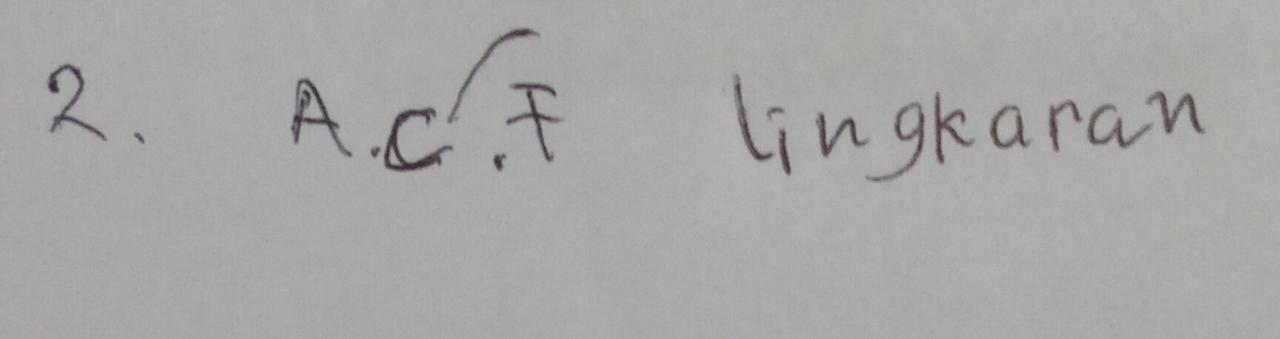 2. A.C.F lingkaran